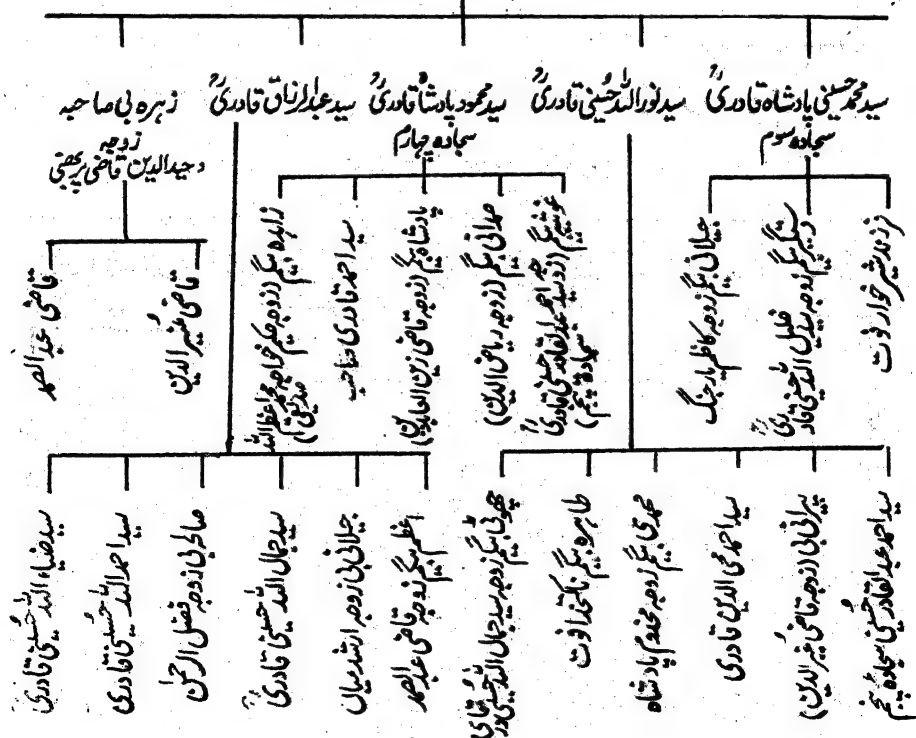 سید محمد حسینی پادشاہ قادریؒ
سجادہ سوم
سید نور اللہ حسینی قادریؒ
سید محمود پادشاہ قادریؒ
سجادہ چہارم
سید عبدالرزاق قادریؒ
زہرہ بی صاحبہ
زوجہ
وحیدالدین قاضی پربھنی
فرزند شیر خوار فوت
دستگیر بیگم زوجہ سید خلیل اللہ حسینی قادریؒ
جیلانی بیگم زوجہ کاظم یار جنگ
غوثیہ بیگم (زوجہ سید احمد عبدالقادر حسینی قادریؒ
سجادہ پنجم)
صمدانی بیگم (زوجہ ریاض الدین)
پادشاہ بیگم (زوجہ قاضی زین العابدین)
سید احمد قادری صاحب
زاہدہ بیگم (زوجہ حکیم خواجہ محمد اعظم اللہ
صدیقی)
قاضی منیر الدین
قاضی عبدالصمد
سید احمد عبدالقادر حسینی سجادہ پنجم
پیرانی بی (زوجہ قاضی منیر الدین)
سید احمد محی الدین قادری
محمدی بیگم زوجہ مخدوم پادشاہ
طاہرہ بیگم ناکتخدا فوت
چھوٹی بیگم زوجہ سید جمال اللہ حسینی قادری
اعظم بیگم زوجہ قاضی عبدالصمد
جیلانی بی زوجہ ارشد میاں
سید جمال اللہ حسینی قادریؒ
صالحہ بی زوجہ فضل الرحمٰن
سید احمد اللہ حسینی قادری
سید ضیاء اللہ حسینی قادری